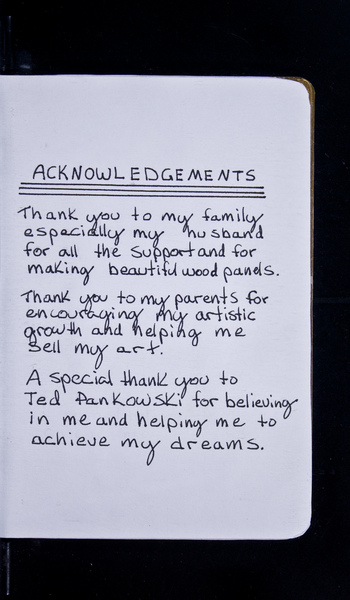 ACKNOWLEDGEMENTS
Thank you to my family
especially my husband
for all the support and for
making beautiful wood panels.
Thank you to my parents for
encouraging my artistic
growth and helping me
sell my art.
A special thank you to
Ted Pankowski for believing
in me and helping me to
achieve my dreams.